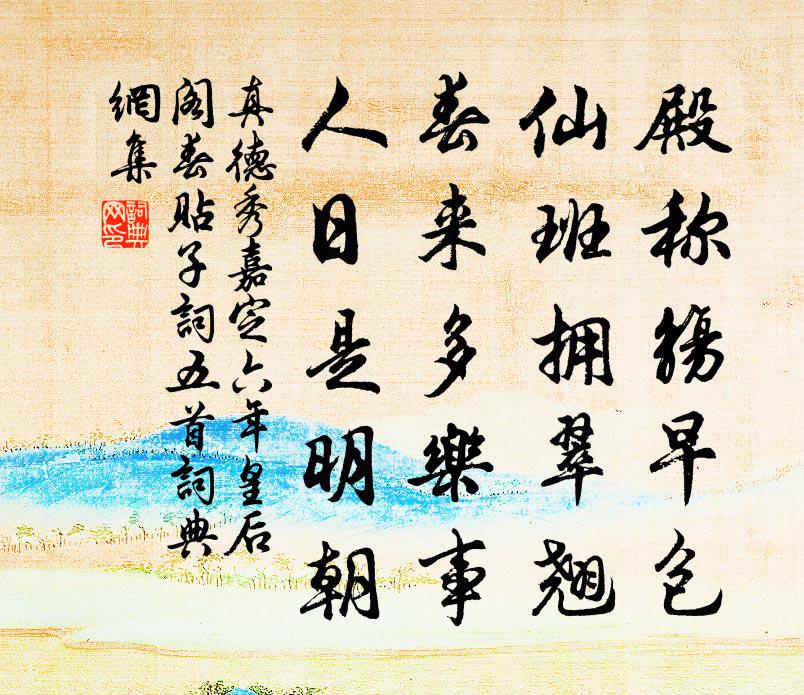 殿称觞早色
仙班拥翠翘
春来多樂事
人日是明朝
真德秀嘉定六年皇后
阁春贴子詞五首詞典
網集
詞典
网印